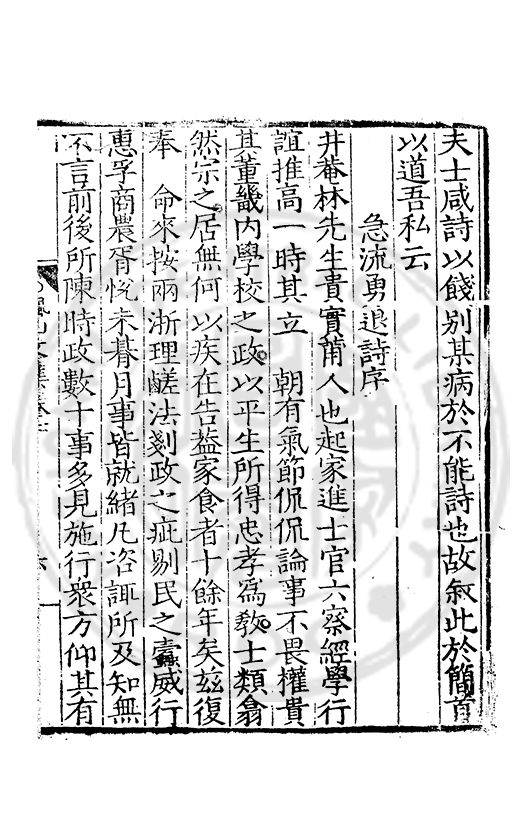 夫士咸詩以餞別某病於不能詩也故叙此於簡首
以道吾私云
急流勇退詩序
井菴林先生貴實莆人也起家進士官六察經學行
誼推高一時其立 朝有氣節侃侃論事不畏權貴
其董畿内學校之政以平生所得忠孝爲教士類翕
然宗之居無何以疾在告葢家食者十餘年矣兹復
奉 命來按兩浙理鹺法剗政之疵剔民之蠹威行
惠孚商農胥悅未朞月事皆就緒凡咨諏所及知無
不言前後所陳時政數十事多見施行衆方仰其有